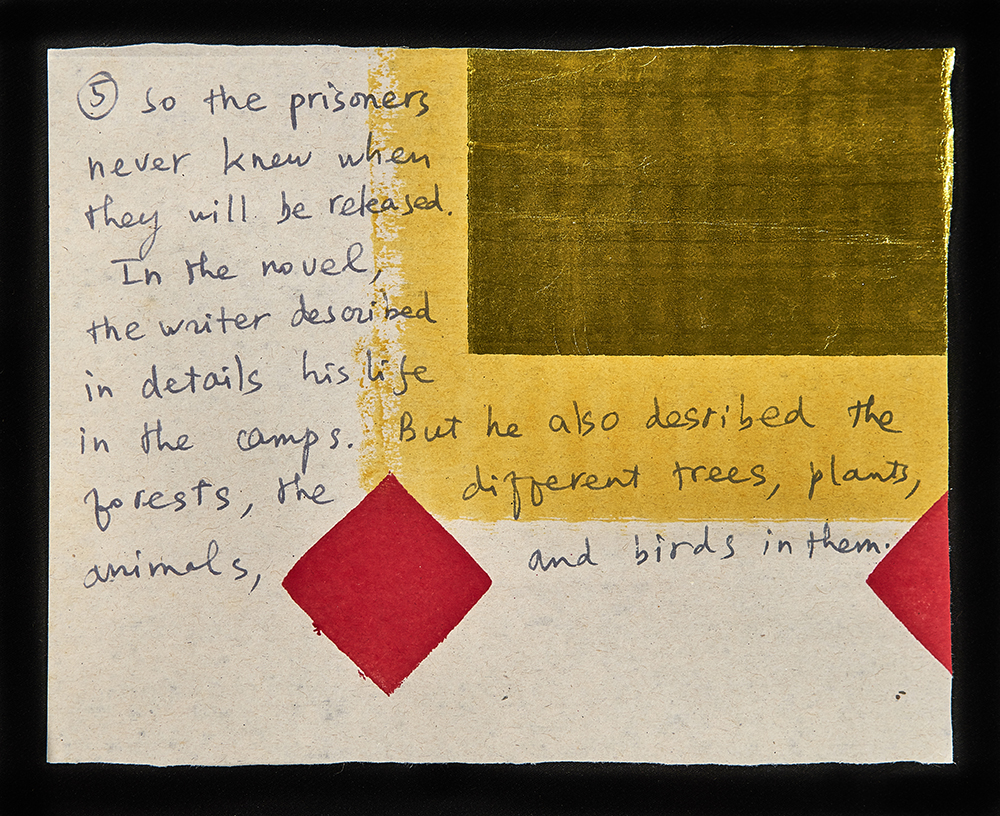 ⑤ so the prisoners
never knew when
they will be released.
In the novel,
the writer described
in details his life
in the camps. But he also desribed the
forests, the different trees, plants,
animals, and birds in them.